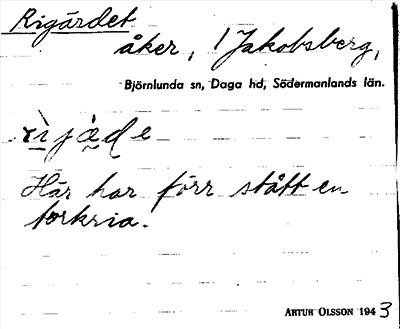 Rigärdet
åker, 1 Jakobsberg,
Björnlunda sn, Daga hd, Södermanlands län.
Här har förr stått en
torkria.
ARTUR OLSSON 1943